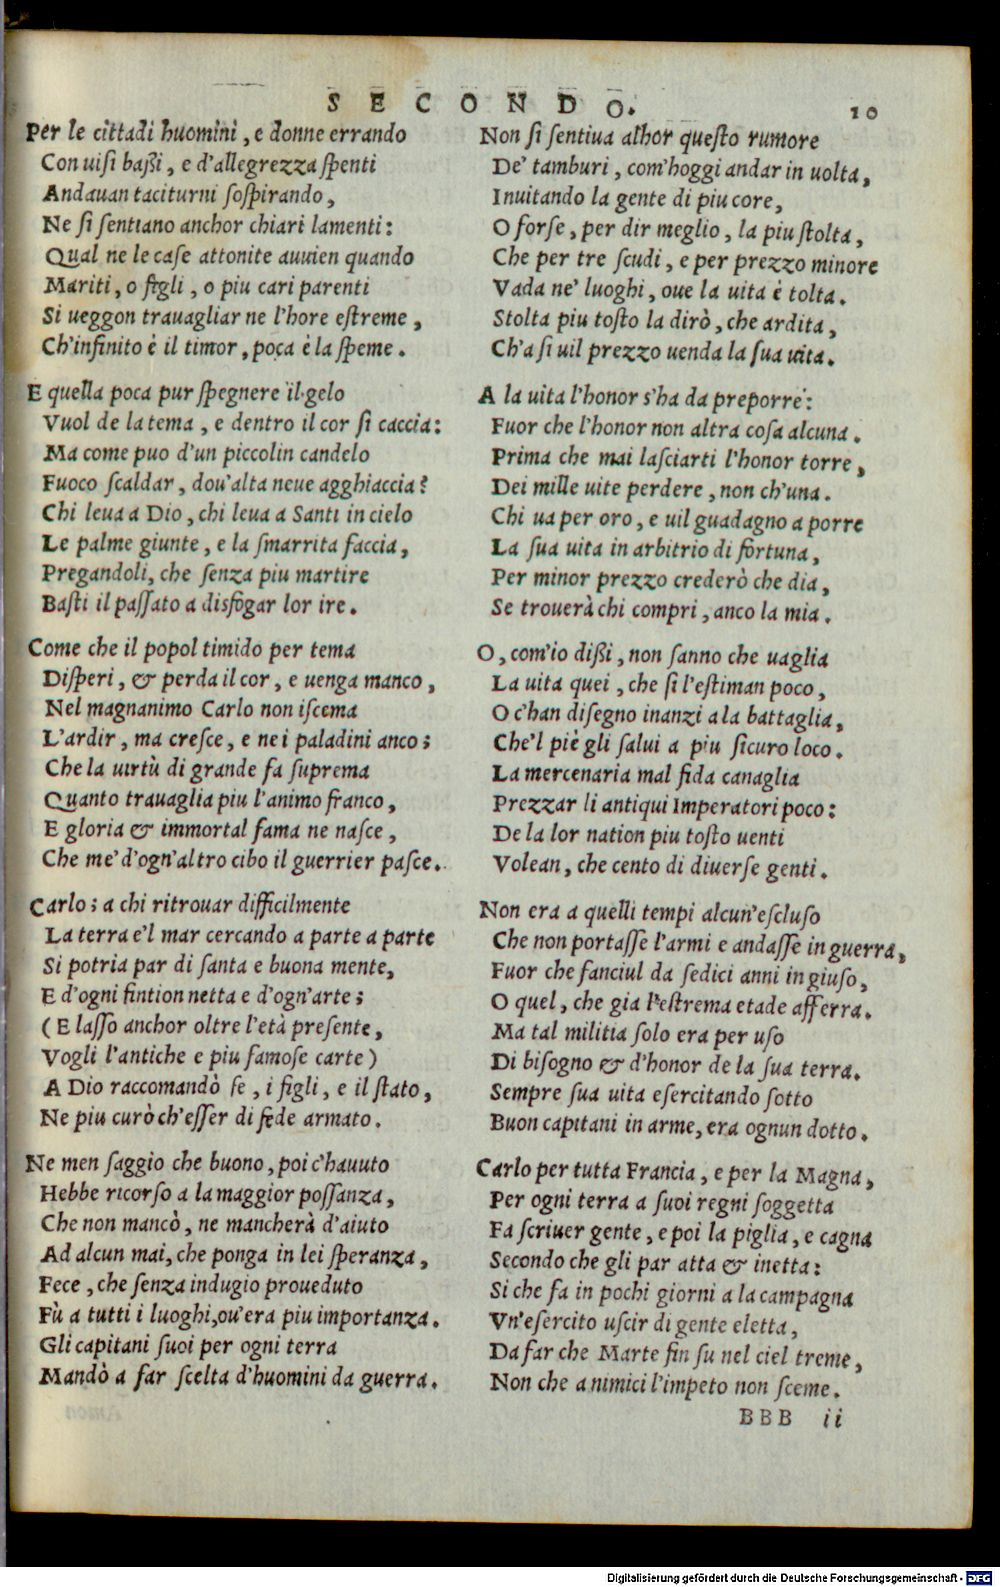 SECONDO.
10
Per le cittadi huomini, e donne errando
Con uisi baßi, e d'allegrezza ſpenti
Andauan taciturni ſoſpirando,
Ne ſi ſentiano anchor chiari lamenti:
Qual ne le caſe attonite auuien quando
Mariti, o figli, o piu cari parenti
Si ueggon trauagliar ne l'hore eſtreme,
Ch'infinito è il timor, poca è la ſpeme.
E quella poca pur ſpegnere il gelo
Vuol de la tema, e dentro il cor ſi caccia:
Ma come puo d'un piccolin candelo
Fuoco ſcaldar, dou'alta neue agghiaccia?
Chi leua a Dio, chi leua a Santi in cielo
Le palme giunte, e la ſmarrita faccia,
Pregandoli, che ſenza piu martire
Baſti il paſſato a disfogar lor ire.
Come che il popol timido per tema
Diſperi, & perda il cor, e uenga manco,
Nel magnanimo Carlo non iſcema
L'ardir, ma creſce, e ne i paladini anco;
Che la uirtù di grande fa ſuprema
Quanto trauaglia piu l'animo franco,
E gloria & immortal fama ne naſce,
Che me' d'ogn'altro cibo il guerrier paſce.
Carlo; a chi ritrouar difficilmente
La terra e'l mar cercando a parte a parte
Si potria par di ſanta e buona mente,
E d'ogni fintion netta e d'ogn'arte;
(E laſſo anchor oltre l'età preſente,
Vogli l'antiche e piu famoſe carte)
A Dio raccomandò ſe, i figli, e il ſtato,
Ne piu curò ch'eſſer di fede armato.
Ne men ſaggio che buono, poi c'hauuto
Hebbe ricorſo a la maggior poſſanza,
Che non mancò, ne mancherà d'aiuto
Ad alcun mai, che ponga in lei ſperanza,
Fece, che ſenza indugio proueduto
Fù a tutti i luoghi, ou'era piu importanza.
Gli capitani ſuoi per ogni terra
Mandò a far ſcelta d'huomini da guerra.
Non ſi ſentiua alhor queſto rumore
De' tamburi, com'hoggi andar in uolta,
Inuitando la gente di piu core,
O forſe, per dir meglio, la piu ſtolta,
Che per tre ſcudi, e per prezzo minore
Vada ne' luoghi, oue la uita è tolta.
Stolta piu toſto la dirò, che ardita,
Ch'a ſi uil prezzo uenda la ſua uita.
A la uita l'honor s'ha da preporre:
Fuor che l'honor non altra coſa alcuna.
Prima che mai laſciarti l'honor torre,
Dei mille uite perdere, non ch'una.
Chi ua per oro, e uil guadagno a porre
La ſua uita in arbitrio di fortuna,
Per minor prezzo crederò che dia,
Se trouerà chi compri, anco la mia.
O, com'io dißi, non ſanno che uaglia
La uita quei, che ſi l'eſtiman poco,
O c'han diſegno inanzi a la battaglia,
Che'l piè gli ſalui a piu ſicuro loco.
La mercenaria mal fida canaglia
Prezzar li antiqui Imperatori poco:
De la lor nation piu toſto uenti
Volean, che cento di diuerſe genti.
Non era a quelli tempi alcun'eſcluſo
Che non portaſſe l'armi e andaſſe in guerra,
Fuor che fanciul da ſedici anni in giuſo,
O quel, che gia l'eſtrema etade afferra.
Ma tal militia ſolo era per uſo
Di biſogno & d'honor de la ſua terra.
Sempre ſua uita eſercitando ſotto
Buon capitani in arme, era ognun dotto.
Carlo per tutta Francia, e per la Magna,
Per ogni terra a ſuoi regni ſoggetta
Fa ſcriuer gente, e poi la piglia, e cagna
Secondo che gli par atta & inetta:
Si che fa in pochi giorni a la campagna
Vn'eſercito uſcir di gente eletta,
Da far che Marte fin ſu nel ciel treme,
Non che a nimici l'impeto non ſceme.
BBB ii
Digitalisierung gefördert durch die Deutsche Forschungsgemeinschaft - DFG